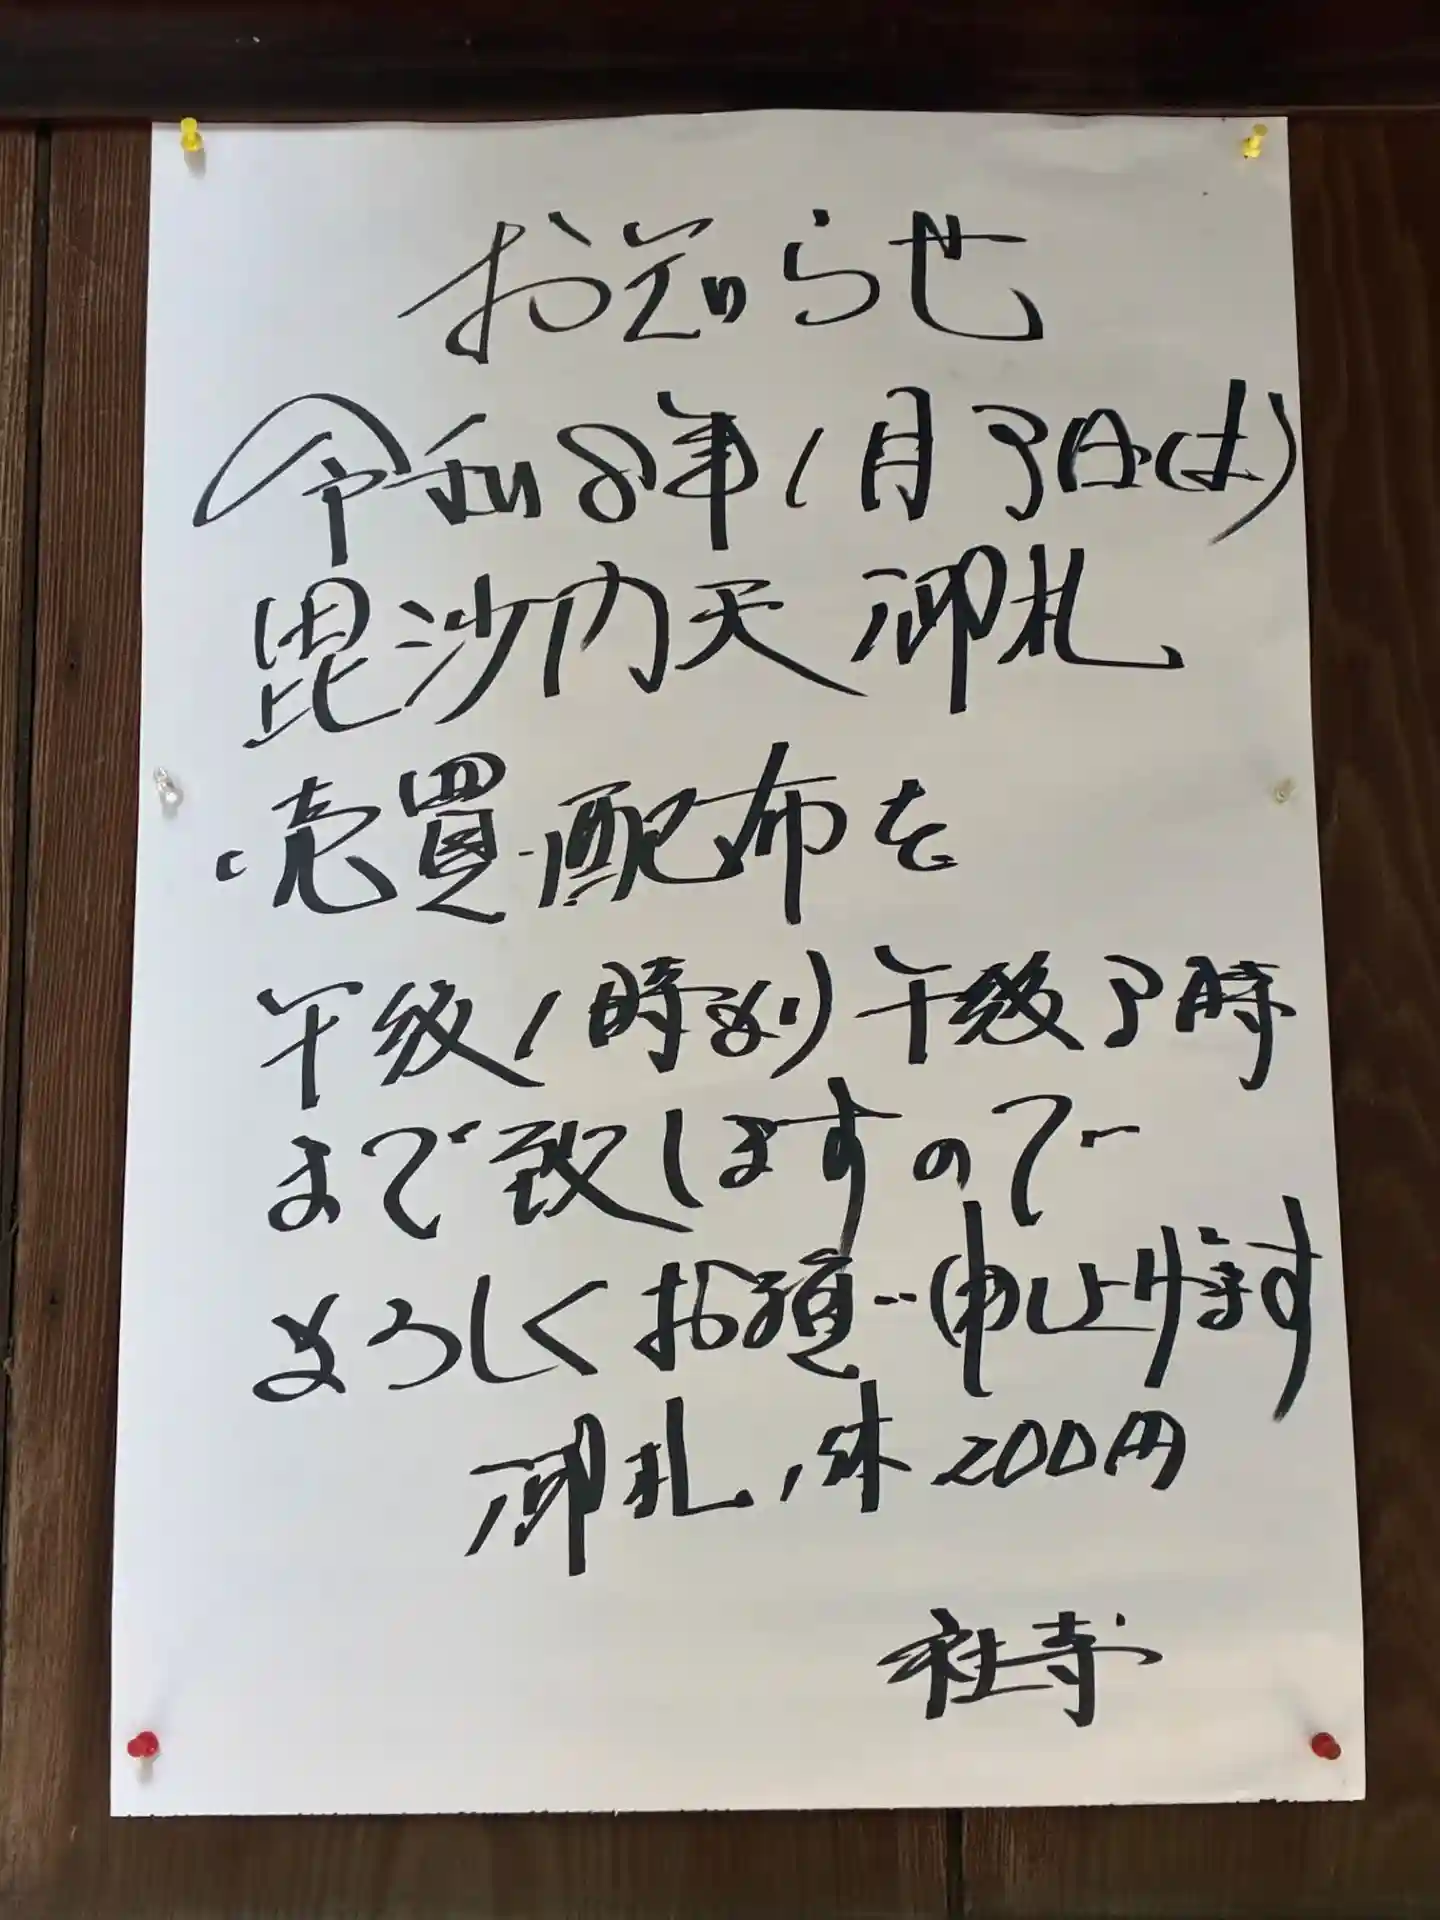 お知らせ
令和8年1月3日(土)
毘沙門天 御札
売買・配布を
午後1時より午後3時
まで致しますので
よろしくお願い申し上ります
御札1体200円
社寺